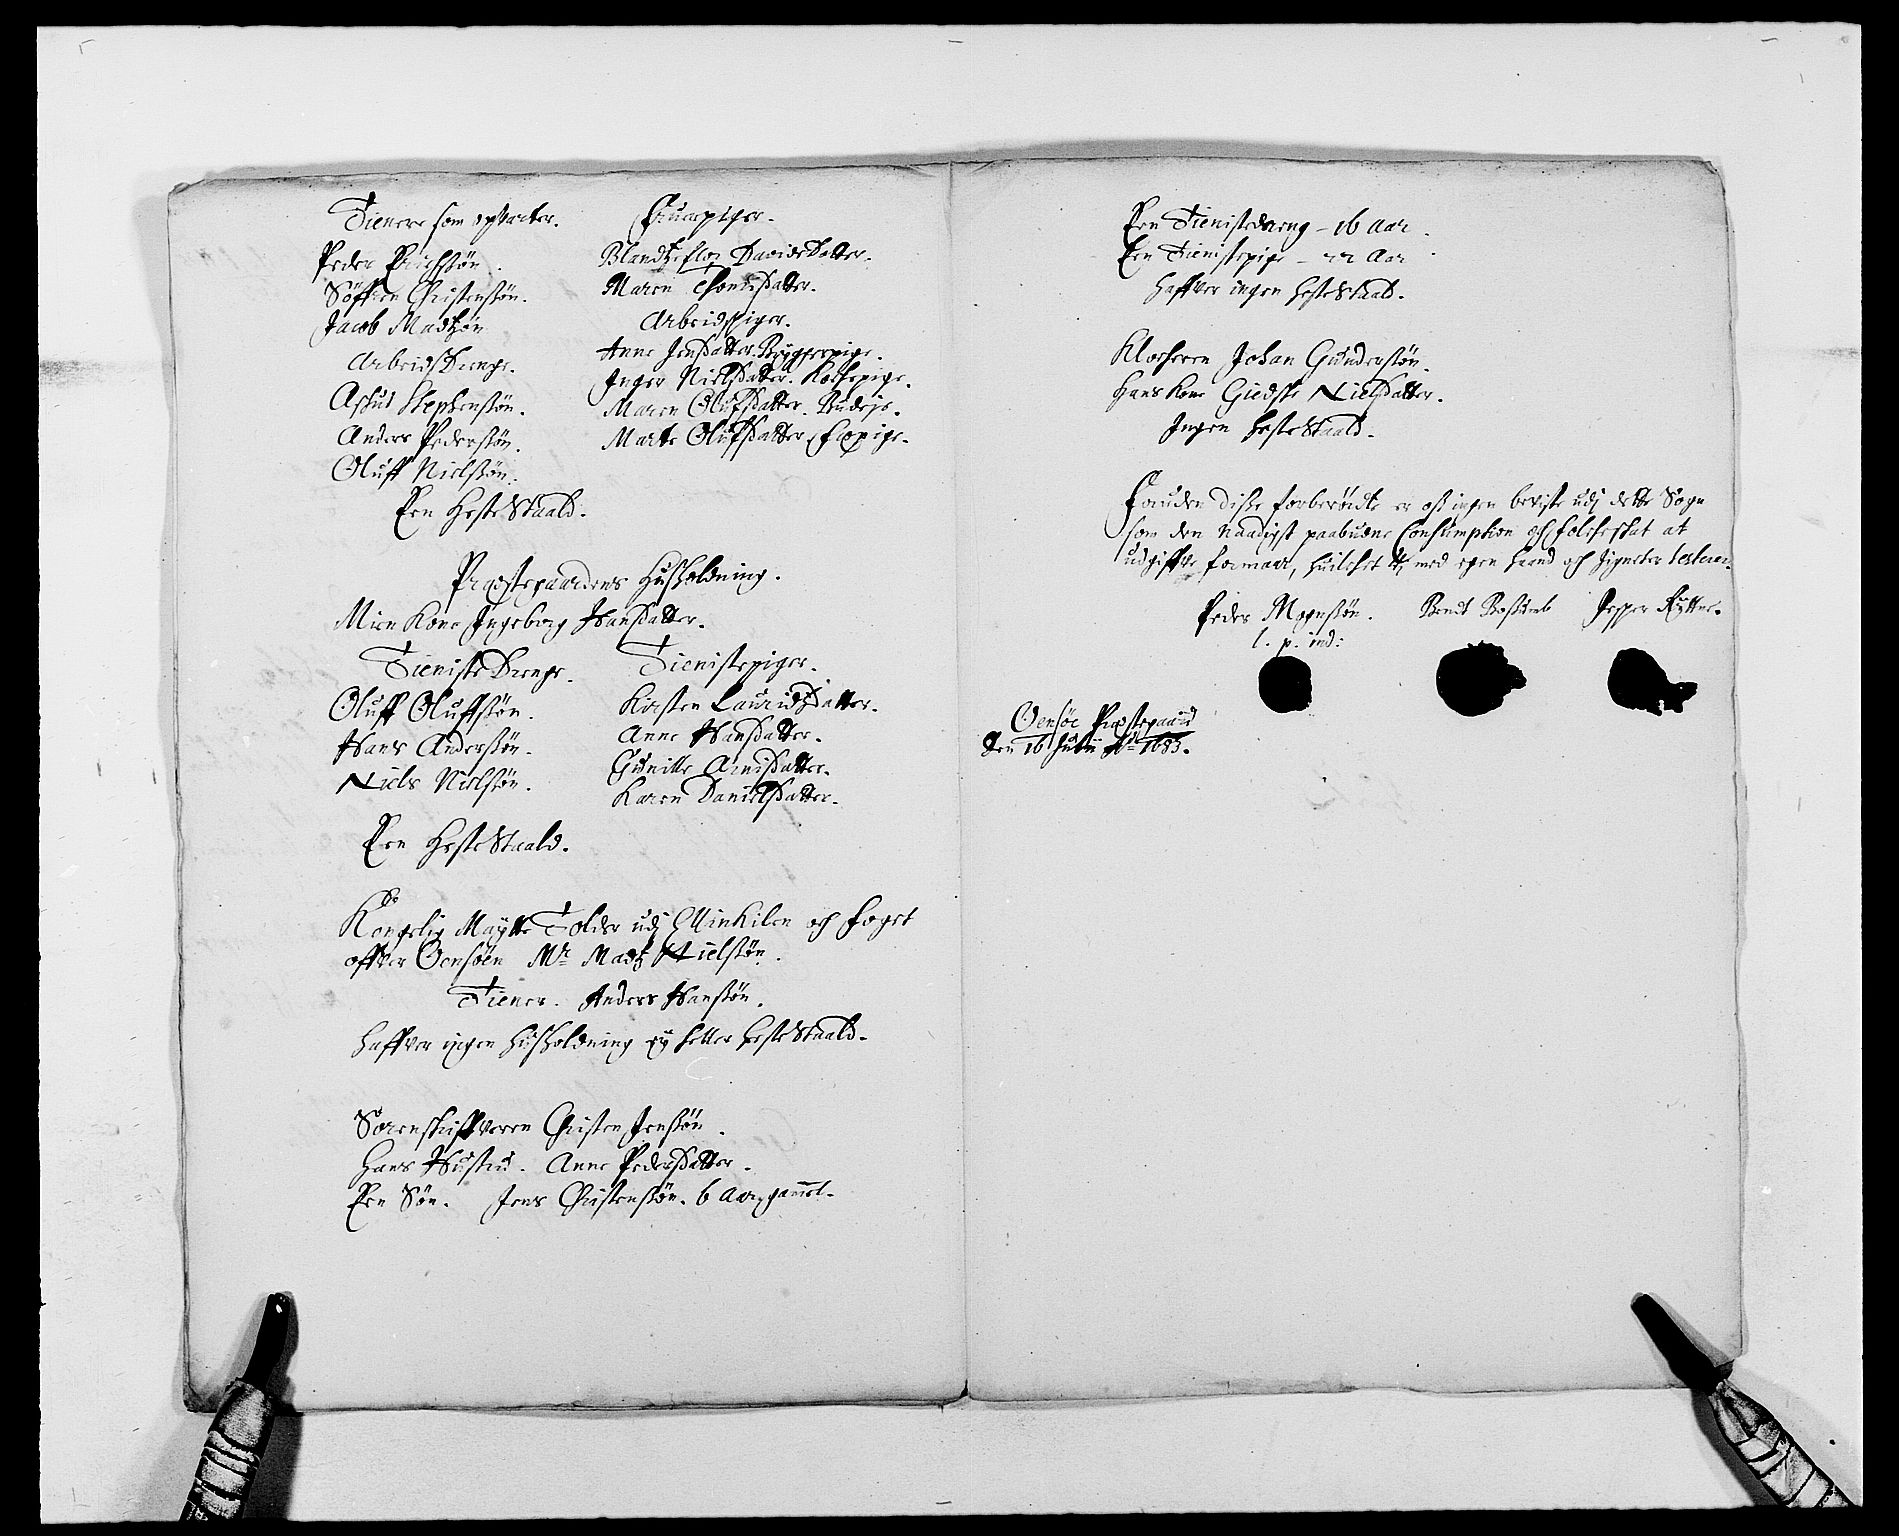 Tienere som opvarter.
Peder Erichssøn.
Søffren Christenssøn.
Jacob Madtzøn
Arbeids Drenge.
Aslut Stephenssøn.
Anders Pederssøn.
Oluff Nielssøn.
Een Heste Staald.
Fruerpiger.
Blandtzeflor Davids Datter.
Maren Datter.
Arbeidspiger.
Anne Jensdatter. Bryggerpige.
Inger Nielsdatter. Kockepige.
Maren Olufsdatter. Budeje.
Marte Olufsdatter, Fæpige.
Præstegaardens Husholdning.
Min Kone Ingeborg Hansdatter.
Tieniste Drenge.
Oluff Oluffssøn.
Hans Anderssøn.
Niels Nielssøn.
Tienistepiger.
Kirsten Lauridtzdatter.
Anne Hansdatter.
Gunille Arnisdatter.
Karen Danielsdatter.
Een Heste Staald.
Kongelig Maytts Tolder udj og foget
offver Oensøen Mr. Madtz Nielssøn.
Tiener. Anders Hanssøn.
haffver ingen husholdning ey heller heste Staald.
Sorenskriffveren Christen Jenssøn.
Hans Hustru. Anne Pedersdatter.
Een Søn. Jens Christenssøn. 6 Aar gamel.
Een Tienistedreng - 16 Aar.
Een Tienistepige - 22 Aar
haffver ingen heste Staald.
Klocheren Johan Gunderssøn.
Hans Kone Giedske Nielsdatter.
Ingen heste Staald.
Foruden disse forberørdte er oss ingen beviste udj dette Sogn
som den Naadigst paabudne Consumption och folcheskat at
udgiffve formaar, huilchet vj med egen haand och Zigneter
Peder Mognssøn. Bendt Jesper Rytter.
l. p. ind:
Oensøe Præstegaard
den 16 Ao 1683.